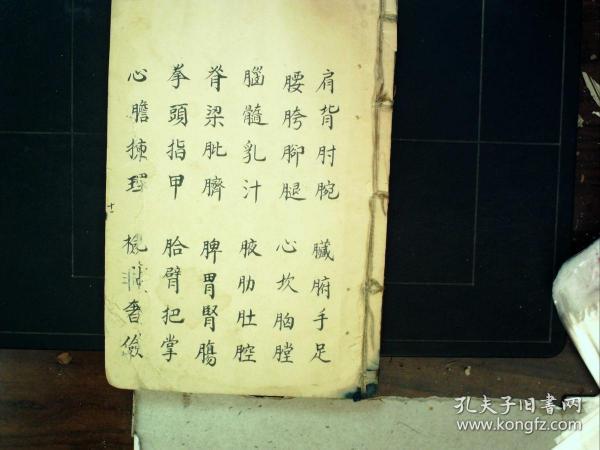 肩背肘腕 臟腑手足
腰胯腳腿 心坎胸膛
腦髓乳汁 腋肋肚腔
脊梁肶臍 脾胃腎腸
拳頭指甲 胎臂把掌
心膽揀理 非奢儉
十一
孔夫子旧书网
www.kongfz.com